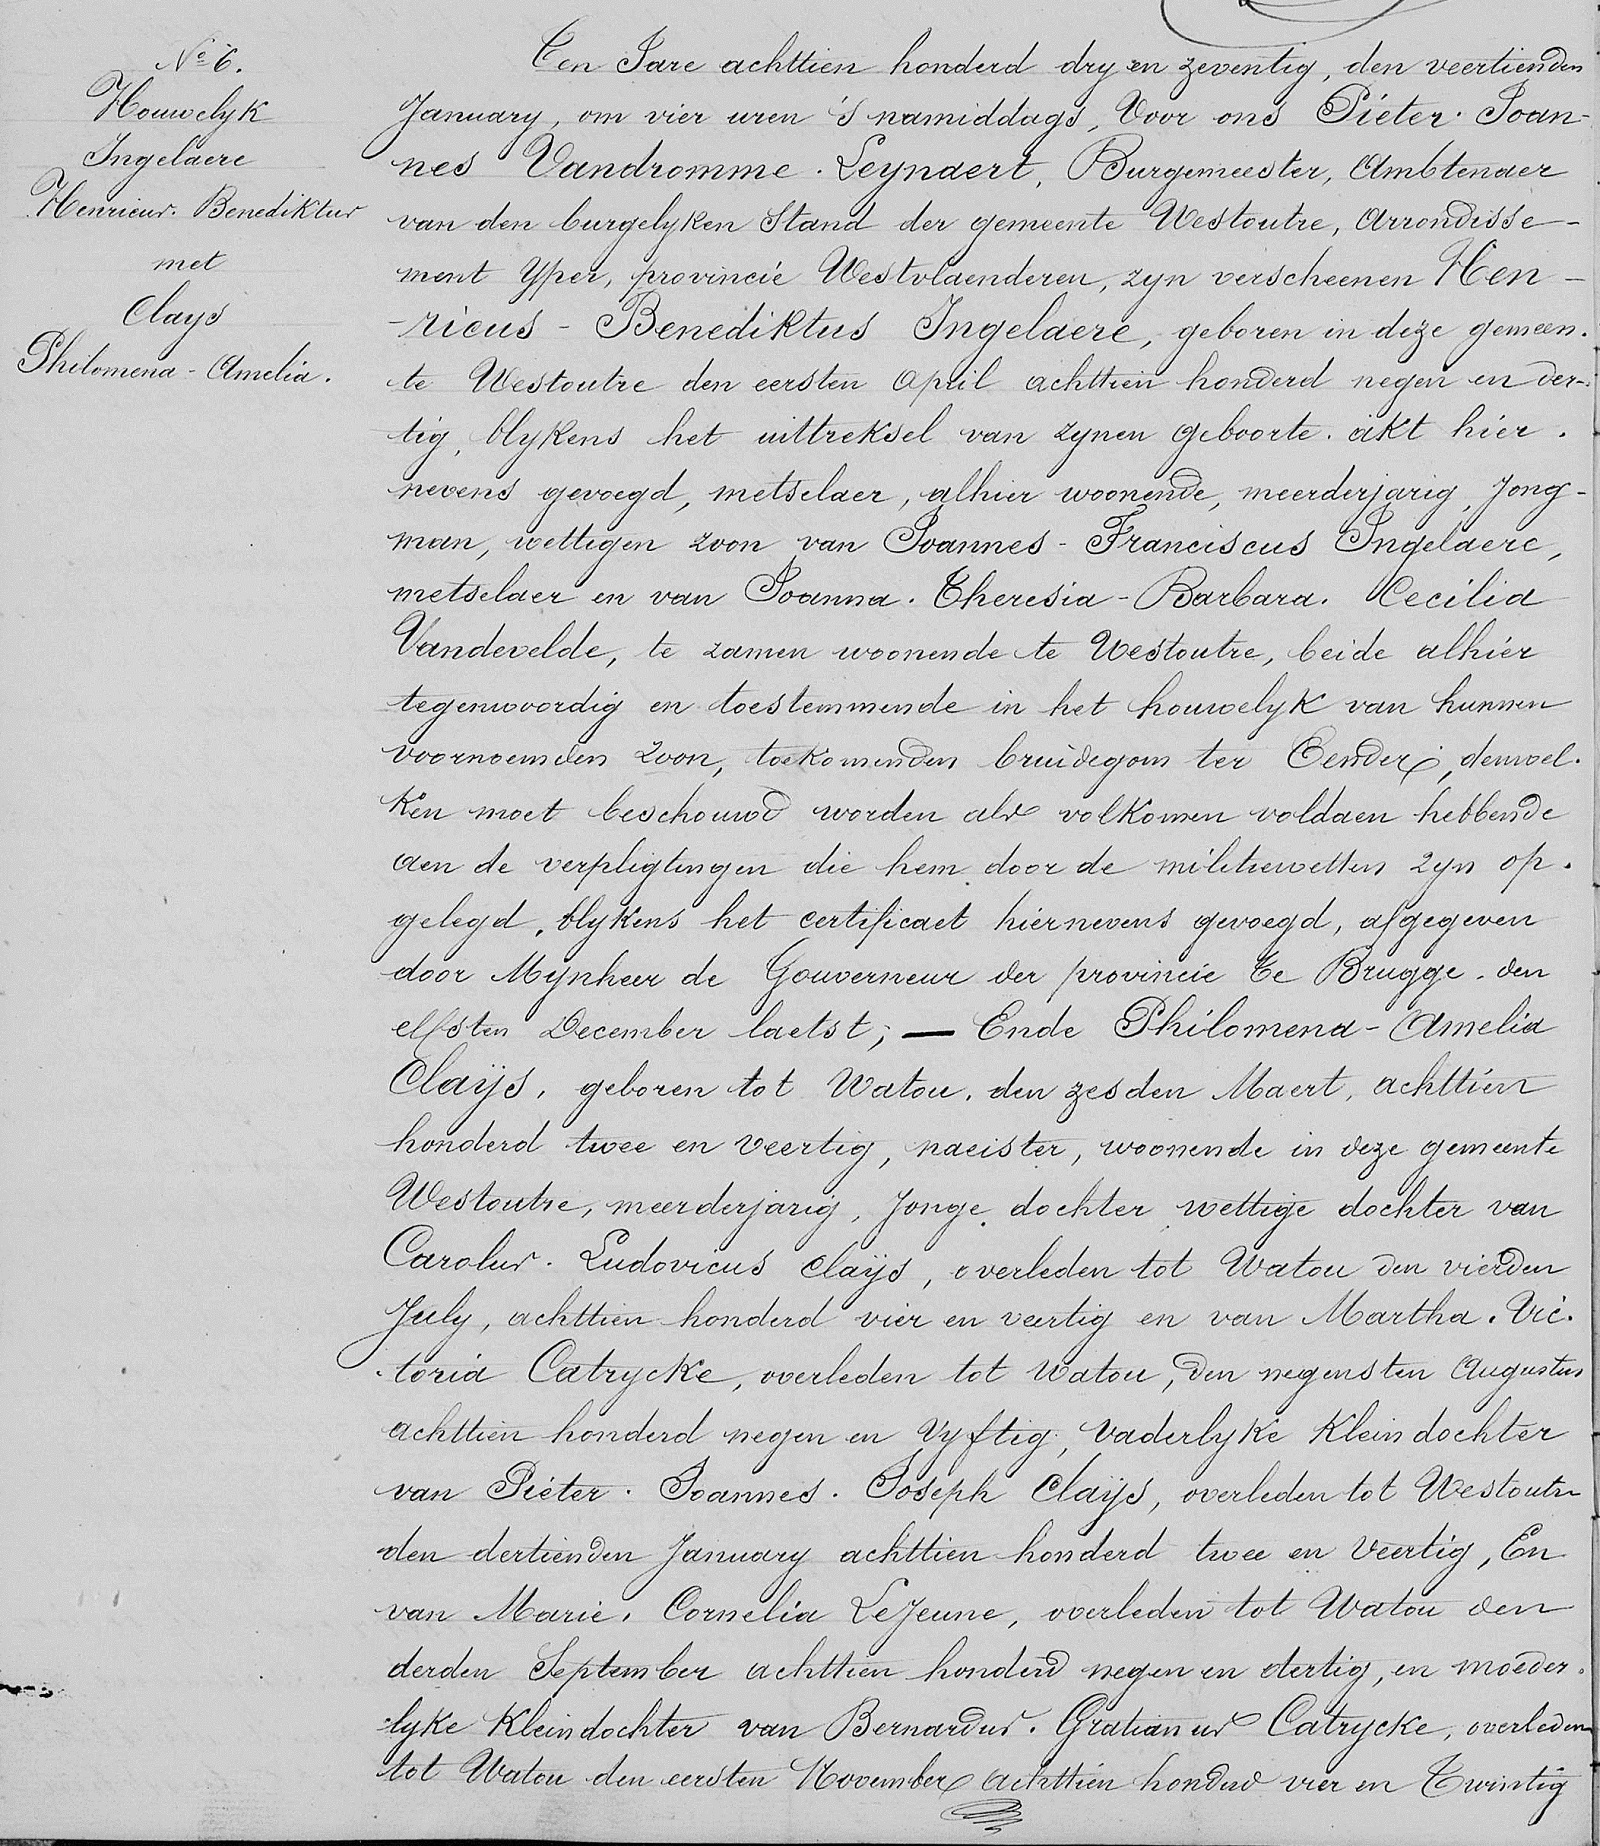 No 6.
Houwelyk
Ingelaere
Henricus. Benediktus
met
Clays
Philomena - Amelia.
Ten Jare achttien honderd dry en zeventig, den veertienden
January, om vier uren 's namiddags, Voor ons Pieter. Joan-
nes Vandromme. Leynaert, Burgemeester, Ambtenaer
van den burgelyken Stand der gemeente Westoutre, Arrondisse-
ment Yper, provincie Westvlaenderen, zyn verscheenen Hen-
-ricus - Benediktus Ingelaere, geboren in deze gemeen.
te Westoutre den eersten April achttien honderd negen en der-
tig, blykens het uittreksel van zynen geboorte. akt hier.
nevens gevoegd, metselaer, alhier woonende, meerderjarig, jong-
man, wettigen zoon van Joannes - Franciscus Ingelaere,
metselaer en van Joanna. Theresia - Barbara. Cecilia
Vandevelde, te zamen woonende te Westoutre, beide alhier
tegenwoordig en toestemmende in het houwelyk van hunnen
voornoemden zoon, toekomenden bruidegom ter Eender, denwel.
ken moet beschouwd worden als volkomen voldaen hebbende
aen de verpligtingen die hem door de militiewetten zyn op.
gelegd, blykens het certificaet hiernevens gevoegd, afgegeven
door Mynheer de Gouverneur der provincie te Brugge. den
elfsten December laetst; — Ende Philomena - Amelia
Claÿs, geboren tot Watou, den zesden Maert, achttien
honderd twee en veertig, naeister, woonende in deze gemeente
Westoutre, meerderjarig, jonge dochter wettige dochter van
Carolus. Ludovicus Claÿs, overleden tot Watou den vierden
July, achttien honderd vier en veertig en van Martha. Vic.
toria Catrycke, overleden tot Watou, den negensten Augustus
achttien honderd negen en vyftig, vaderlyke Kleindochter
van Pieter. Joannes. Joseph Claÿs, overleden tot Westoutre
den dertienden January achttien honderd twee en veertig, En
van Marie. Cornelia LeJeune, overleden tot Watou den
derden September achttien honderd negen en dertig, en moeder.
lyke Kleindochter van Bernardus. Gratianus Catrycke, overleden
tot Watou den eersten November achttien honderd vier en Twintig